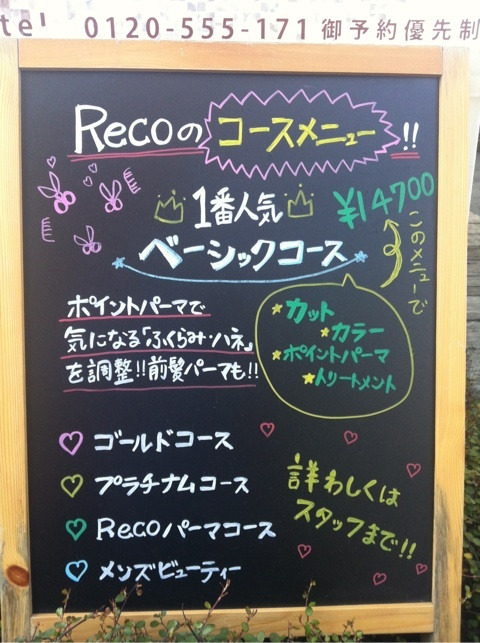 tel 0120-555-171 御予約優先制
Recoのコースメニュー!!
1番人気
¥14700
ベーシックコース
このメニューで
ポイントパーマで
気になる「ふくらみ・ハネ」
を調整!!前髪パーマも!!
カット
カラー
ポイントパーマ
トリートメント
ゴールドコース
プラチナムコース
Recoパーマコース
メンズビューティー
詳わしくは
スタッフまで!!